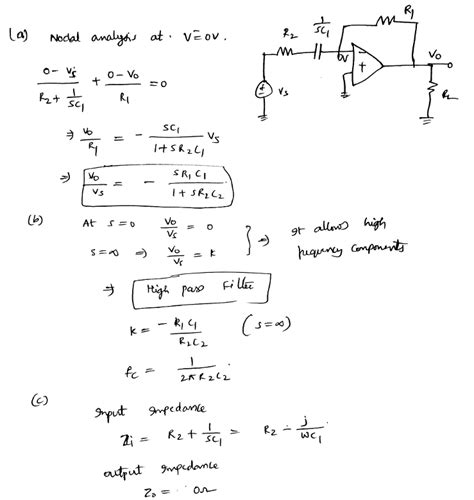 (a) Nodal analysis at V⁻= 0V.
(0 - Vs)/(R2 + 1/SC1) + (0 - Vo)/R1 = 0
⇒ Vo/R1 = - SC1/(1+SR2C1) Vs
⇒ Vo/Vs = - SR1C1/(1+SR2C2)
R1
R2
1/SC1
0V
-
+
Vs
Vo
RL
(b) At S=0 Vo/Vs = 0
S=∞ ⇒ Vo/Vs = k
} ⇒ It allows high
frequency components
⇒ High pass Filter
k = - R1C1/R2C2 (S=∞)
fc = 1/2πR2C2
(c) Input impedance
Zi = R2 + 1/SC1 = R2 - j/WC1
output impedance
Zo = 0Ω